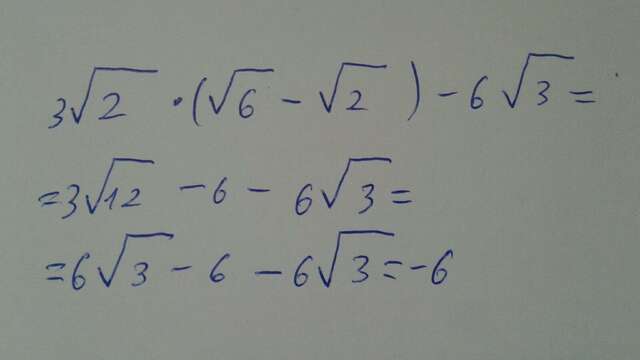 3√2 · (√6 - √2) - 6√3 =
= 3√12 - 6 - 6√3 =
= 6√3 - 6 - 6√3 = -6